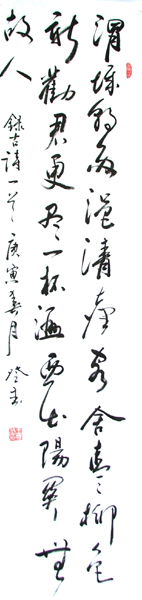 渭城朝雨浥清塵客舍青々柳色
新勸君更尽一杯酒西出陽關無
故人
錄古詩一首 庚寅春月